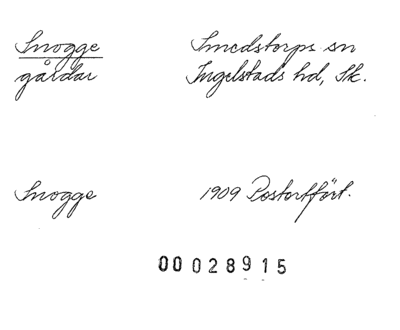 Snogge Smedstorps sn
gårdar Ingelstads hd, Sk.
Snogge 1909 Postortfört.
00028915